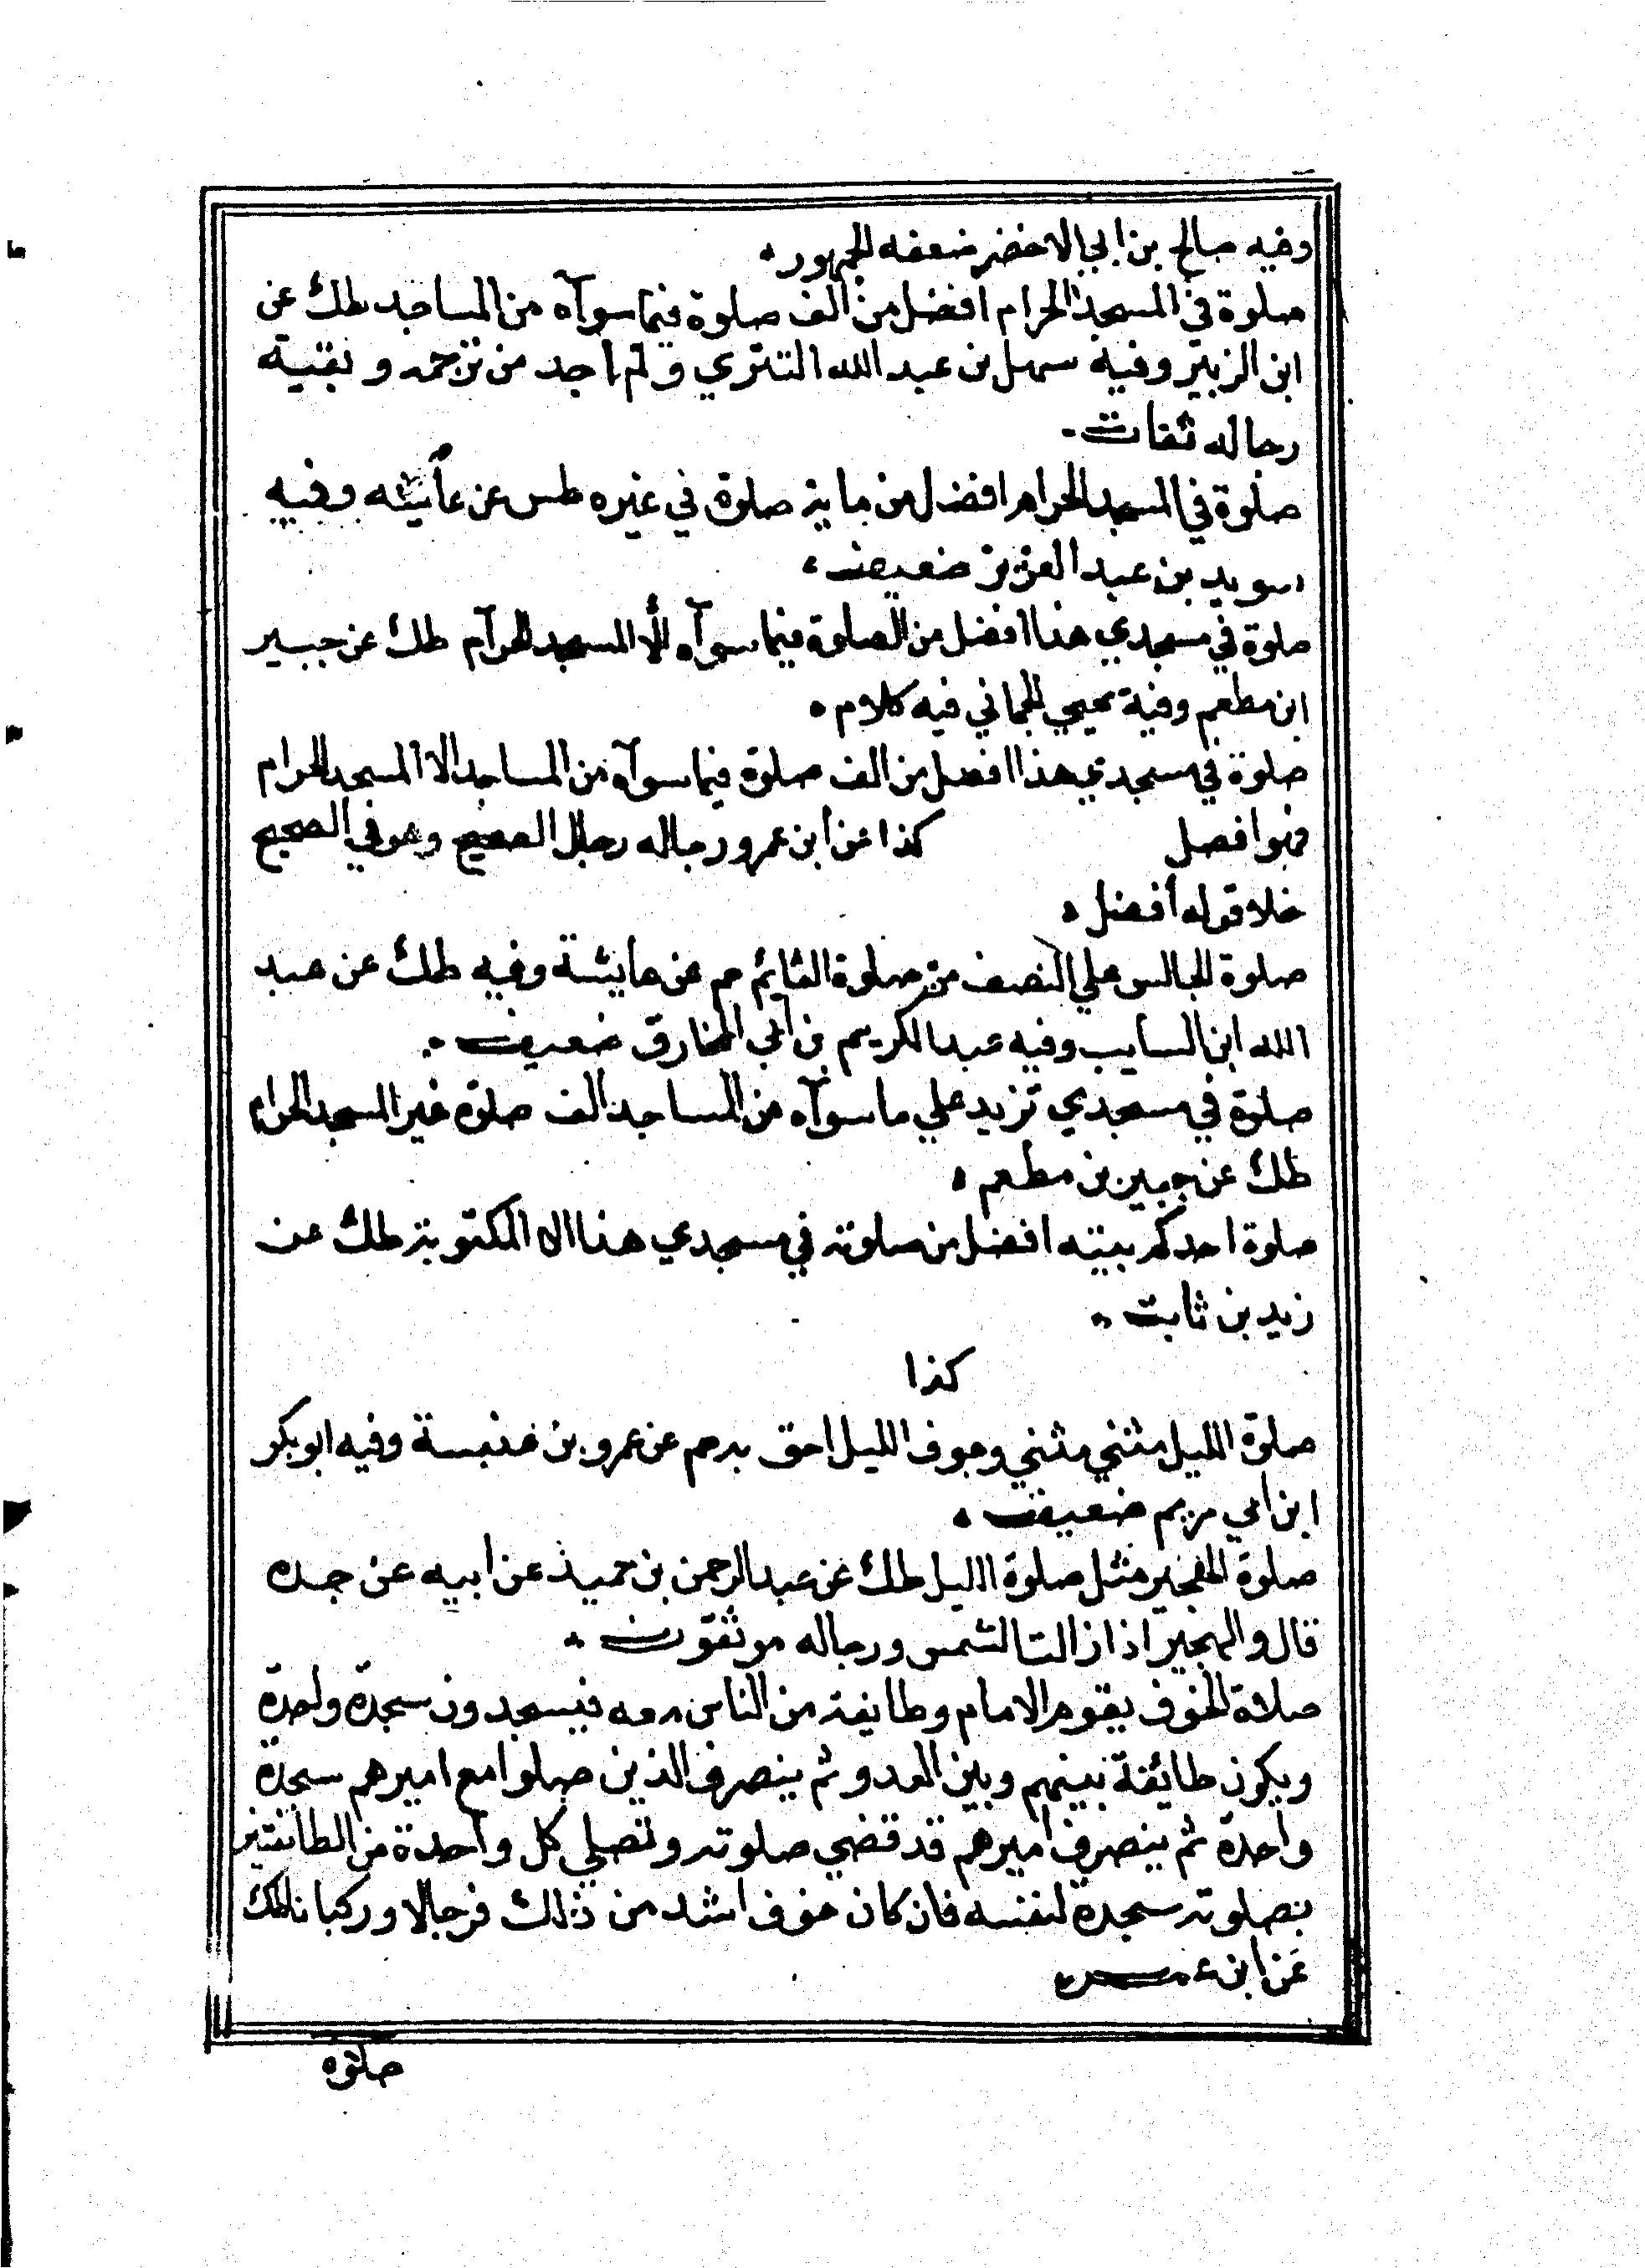 وفيه صالح بن ابي الاخضر ضعفه الجمهور
صلوة في المسجد الحرام افضل من الف صلوة فيما سوآه من المساجد طك عن
ابن الزبير وفيه سهل بن عبد الله التتري ولم اجد من ترجمه وبقية
رجاله ثقات
صلوة في المسجد الحرام افضل من ماية صلوة في غيره طس عن عايشه وفيه
سويد بن عبد العزيز ضعيف
صلوة في مسجدي هذا افضل من الصلوة فيما سوآه الا المسجد الحرآم طك عن جبير
ابن مطعم وفية يحيي الحماني فيه كلام
صلوة في مسجدي هذا افضل من الف صلوة فيما سوآه من المساجد الا المسجد الحرام
فهو افضل كذا عن ابن عمر ورجاله رجال الصحيح وهو في الصحيح
خلا قوله أفضل
صلوة الجالس علي النصف من صلوة القائم حم عن عايشة وفيه طك عن عبد
الله ابن السايب وفيه عبد الكريم بن ابي المخارق ضعيف
صلوة في مسجدي تزيد علي ما سوآه من المساجد الف صلوة غير المسجد الحرام
طك عن جبير بن مطعم
صلوة احدكم ببيته افضل من صلوته في مسجدي هذا الا المكتوبة طك عن
زيد بن ثابت
كذا
صلوة الليل مثني مثني وجوف الليل احق به حم عن عمرو بن عنبسة وفيه ابو بكر
ابن ابي مريم ضعيف
صلوة الهجير مثل صلوة الليل طك عن عبد الرحمن بن حميد عن ابيه عن جده
قال والهجير اذا زالت الشمس ورجاله موثقون
صلاة الخوف يقوم الامام وطايفة من الناس معه فيسجدون سجدة واحدة
ويكون طائفة بينهم وبين العدو ثم ينصرف الذين صلوا مع اميرهم سجدة
واحدة ثم ينصرف اميرهم قد قضي صلوته وتصلي كل وآحدة من الطائفتين
بصلوته سجدة لنفسه فان كان خوف اشد من ذلك فرجالا وركبانا طك
عن ابن عمر
صلوة